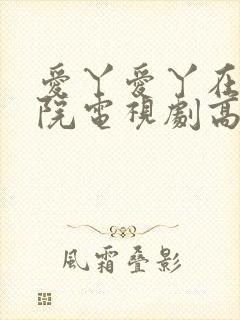 愛丫愛丫在
院電視劇高
風霜疊影